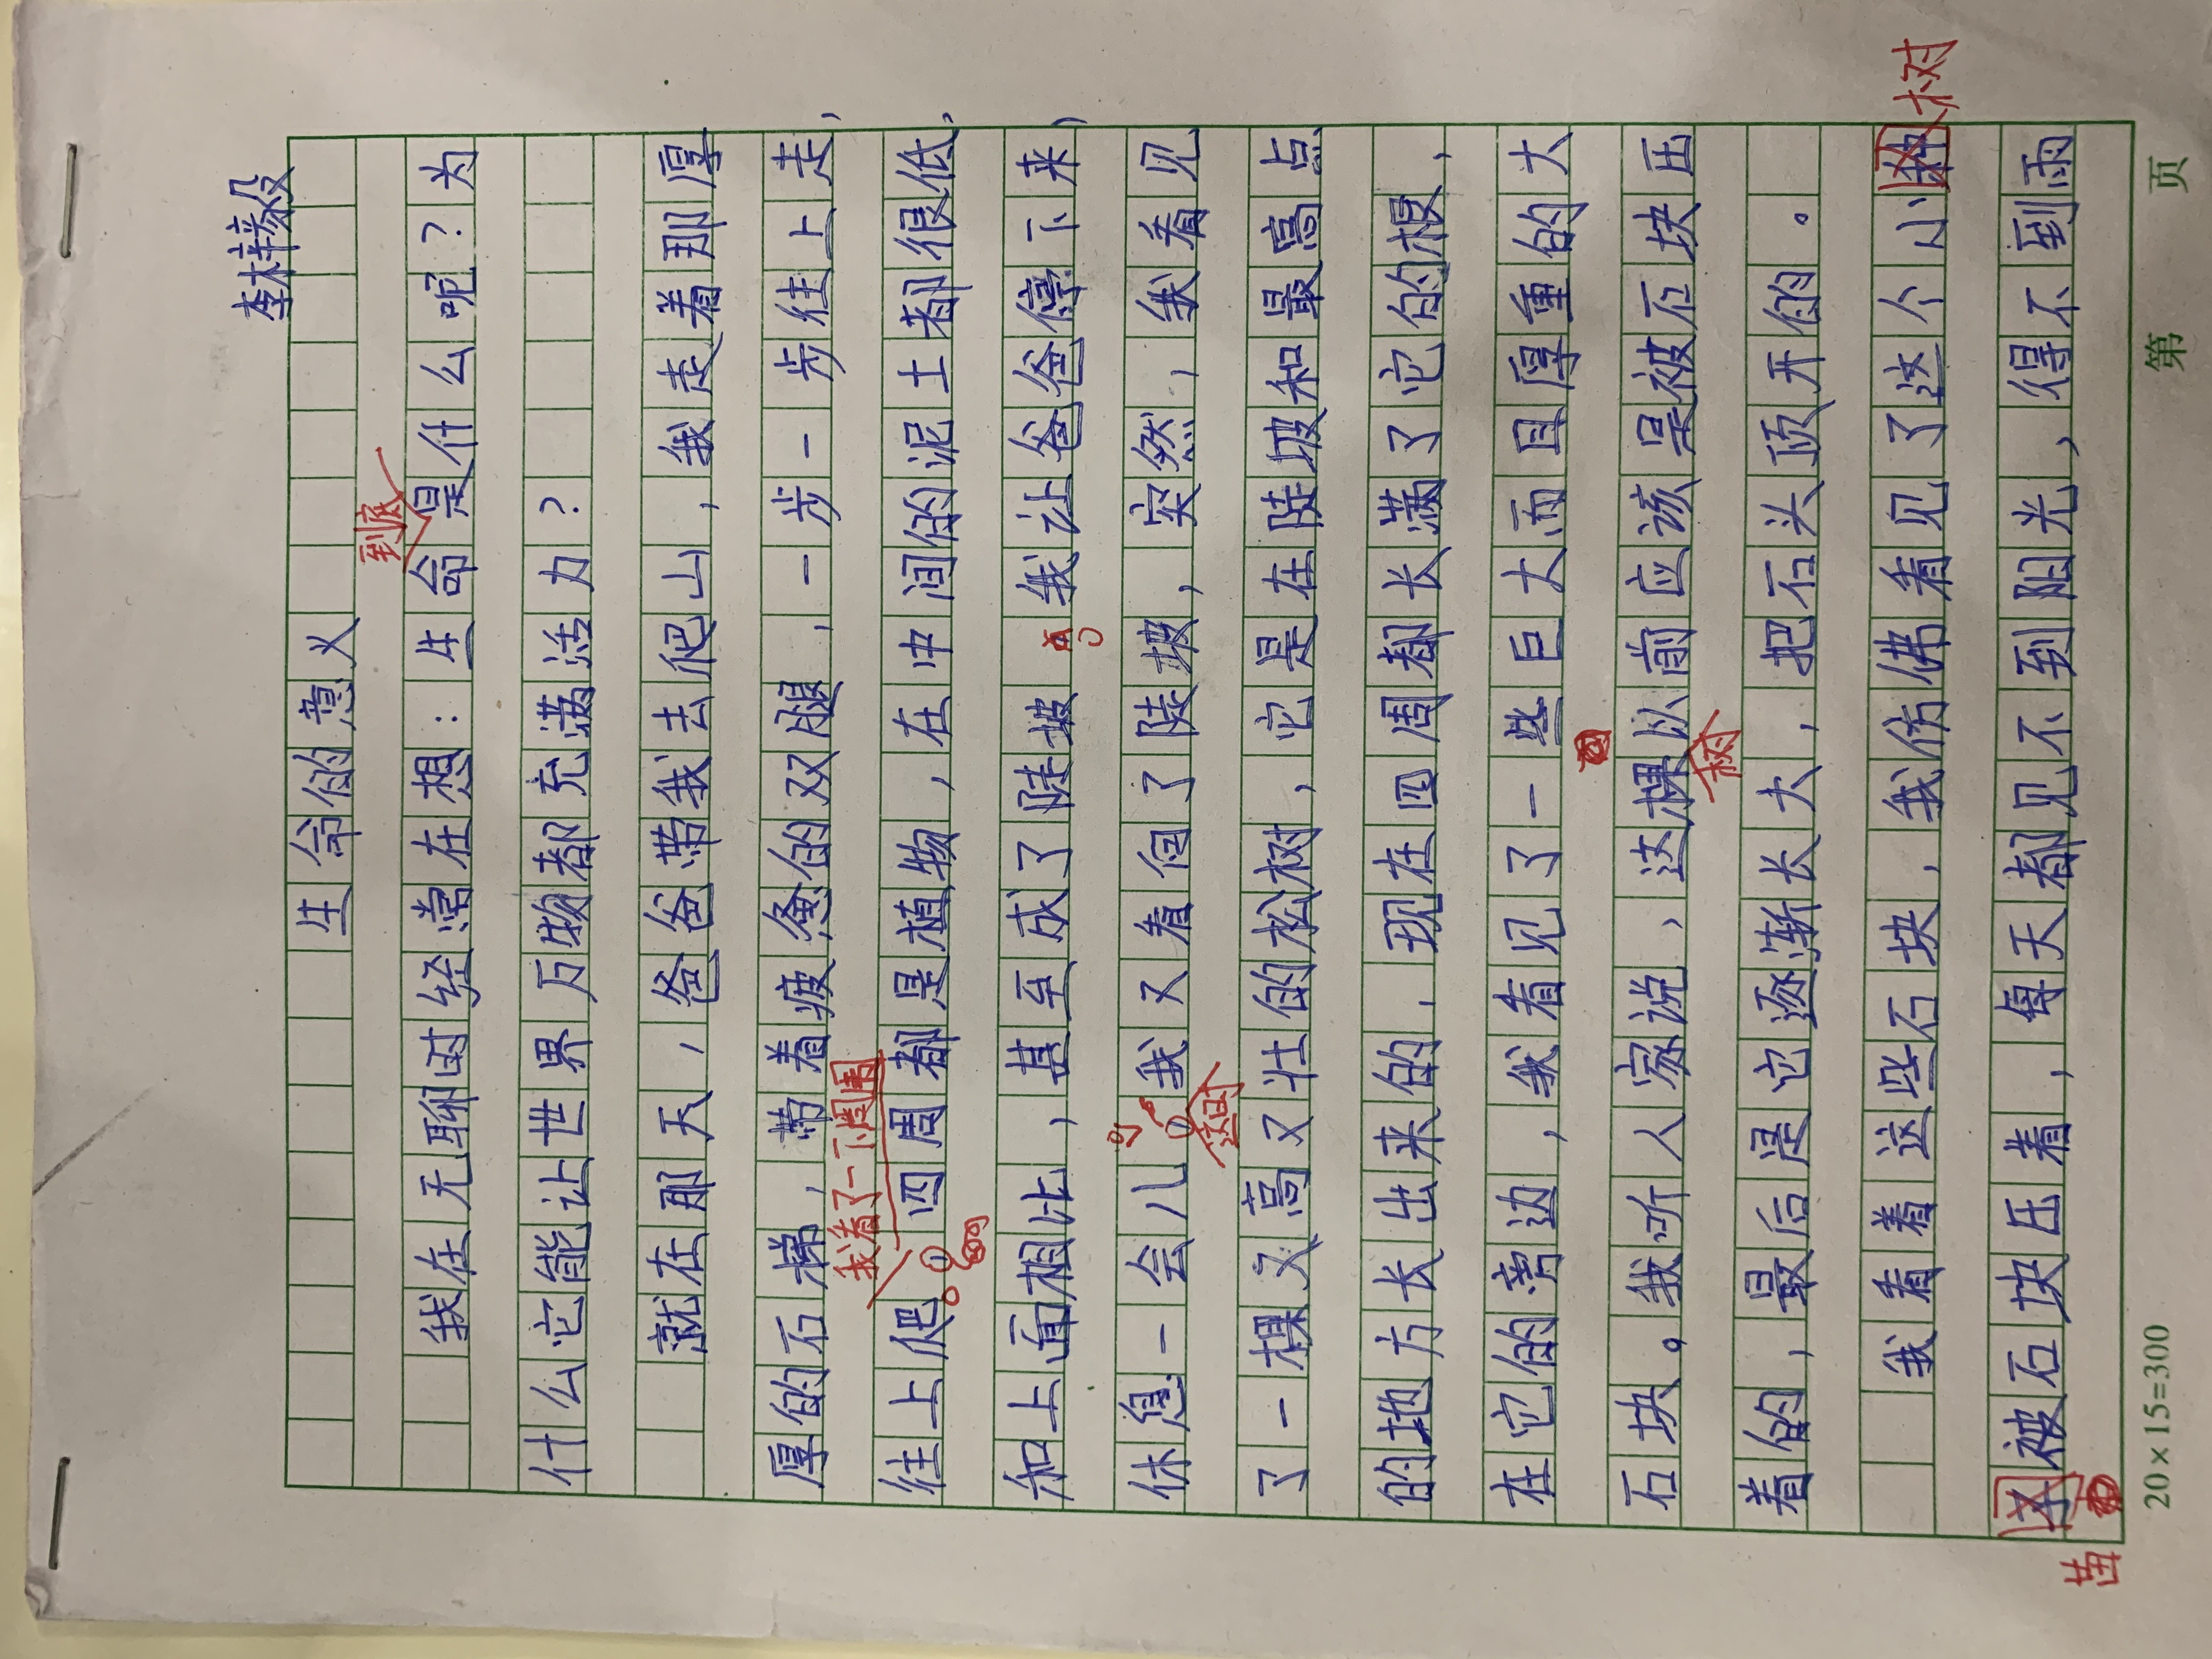 李梓毅
生命的意义
到底
我在无聊时经常在想：生命是什么呢？为
什么它能让世界万物都充满活力？
就在那天，爸爸带我去爬山，我走着那厚
厚的石梯，带着疲惫的双腿，一步一步往上走，
我看了一下周围
往上爬，四周都是植物，在中间的泥土都很低，
和上面相比，甚至成了陡坡 我让爸爸停下来，
休息一会儿，我又看向了陡坡，突然，我看见
这时
了一棵又高又壮的松树，它是在陡坡和最高点
的地方长出来的，现在四周都长满了它的根，
在它的旁边，我看见了一些巨大而且厚重的大
石块。我听人家说，这棵以前应该是被石块压
树
着的，最后是它逐渐长大，把石头顶开的。
我看着这些石块，我仿佛看见了这个小
树
被石块压着，每天都见不到阳光，得不到雨
苗
20×15=300 第 页